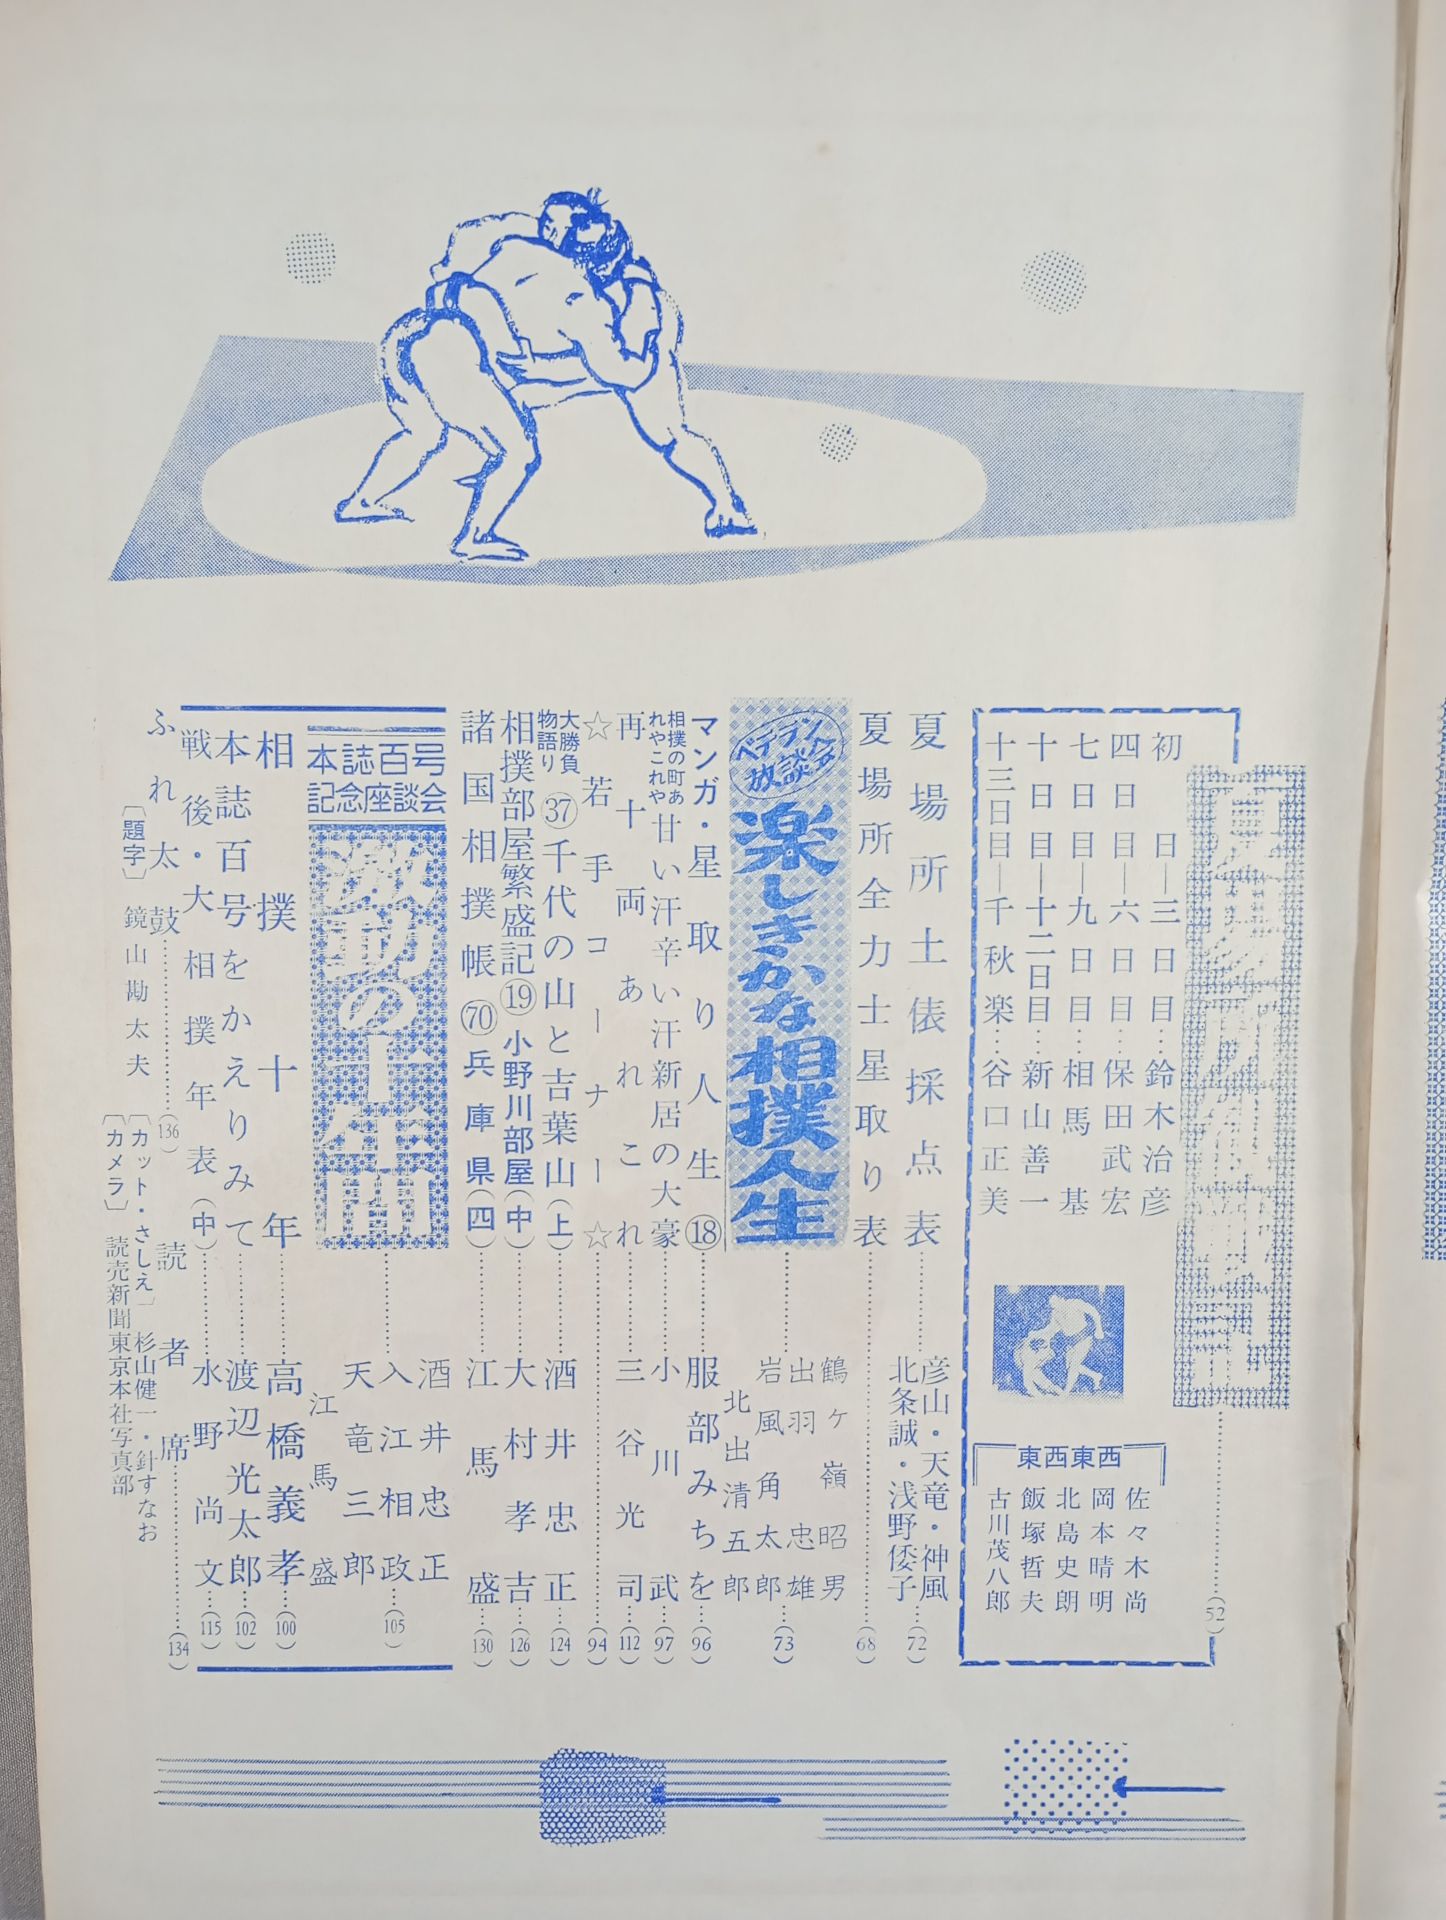 夏場所体戦評
初日―三日目…鈴木治彦
四日目―六日目…保田武宏
七日目―九日目…相馬基
十日目―十二日目…新山善一
十三日目―千秋楽…谷口正美
東西東西
佐々木尚
岡本晴明
北島史朗
飯塚哲夫
古川茂八郎
(52)
夏場所土俵採点表
彦山・天竜・神風
北条誠・浅野倭子…(72)
夏場所全力士星取り表…(68)
ベテラン放談会
楽しきかな相撲人生
鶴ヶ嶺昭男
出羽忠雄
岩風角太郎
北出清五郎
…(73)
マンガ・星取り人生⑱…服部みちを…(96)
相撲の町あれやこれや
甘い汗辛い汗新居の大豪…小川武…(97)
再十両あれこれ…三谷光司…(112)
☆若手コーナー☆…(94)
大勝負物語り㊲千代の山と吉葉山(上)…酒井忠正…(124)
相撲部屋繁盛記⑲小野川部屋(中)…大村孝吉…(126)
諸国相撲帳(70)兵庫県(四)…江馬盛…(130)
本誌百号記念座談会
激動の十年間
酒井忠正
入江相政
天竜三郎
江馬盛
…(105)
相撲十年…高橋義孝…(100)
本誌百号をかえりみて…渡辺光太郎…(102)
戦後・大相撲年表(中)…水野尚文…(115)
ふれ太鼓…(136)
読者席…(134)
〔題字〕鏡山勘太夫
〔カット・さしえ〕杉山健一・針すなお
〔カメラ〕読売新聞東京本社写真部